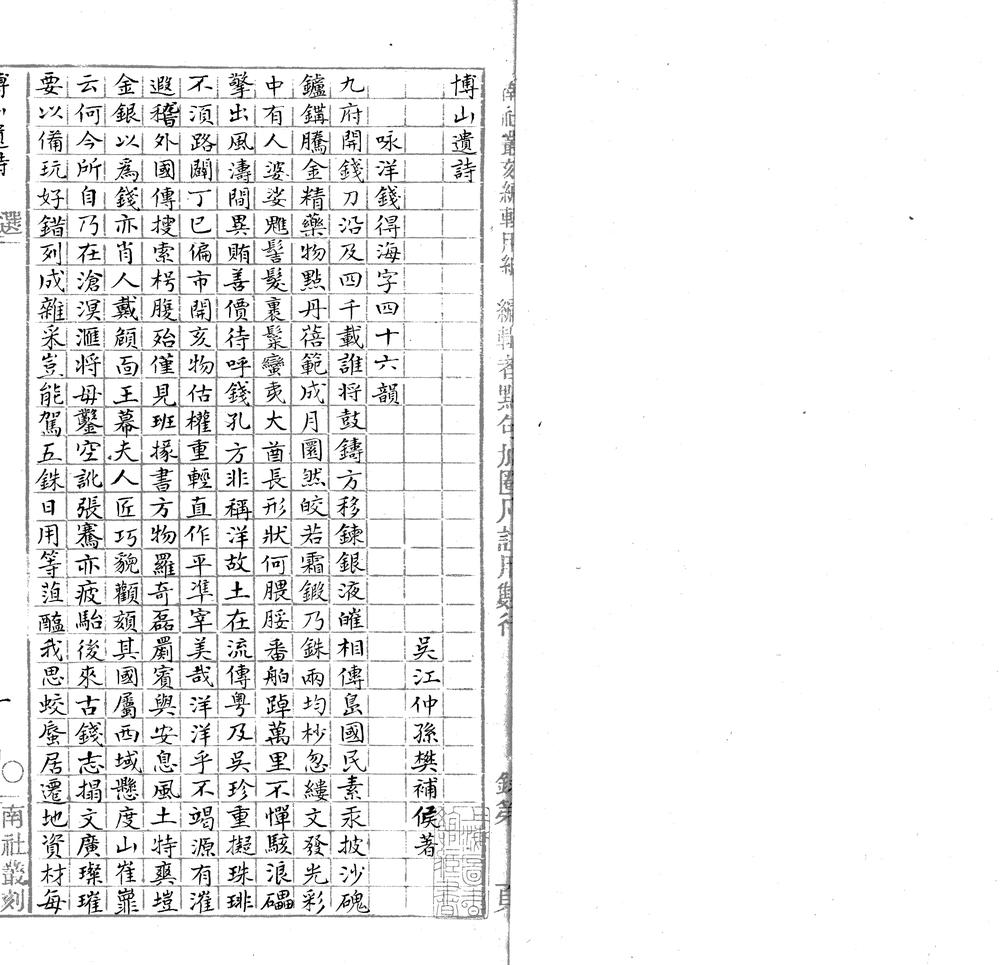 博山遺詩
吳江仲孫樊補侯著
咏洋錢得海字四十六韻
九府開錢刀沿及四千載誰將鼓鑄方移鍊銀液皠相傳島國民素汞披沙磈
鑪鞲騰金精藥物點丹蓓範成月圓然皎若霜鍛乃銖兩均杪忽縷文發光彩
中有人婆娑䰀髻髮裹鬤蠻夷大酋長形狀何腲脮番舶踔萬里不憚駭浪礧
擎出風濤間異賄善價待呼錢孔方非稱洋故土在流傳粵及吳珍重擬珠琲
不須路闢丁已偏市開亥物估權重輕直作平準宰美哉洋洋乎不竭源有漼
遐稽外國傳搜索枵腹殆僅見班掾書方物羅奇磊罽賓與安息風土特爽塏
金銀以爲錢亦肖人戴頠面王幕夫人匠巧貌顴頦其國屬西域懸度山崔嶵
云何今所自乃在滄溟滙將毋鑿空訛張騫亦疲駘後來古錢志搨文廣璨璀
要以備玩好錯列成雜采豈能駕五銖日用等菹醢我思蛟蜃居遷地資材每
博山遺詩
選
一
南社叢刻
南社叢刻編輯用紙
編輯者點句加圈凡註用雙行